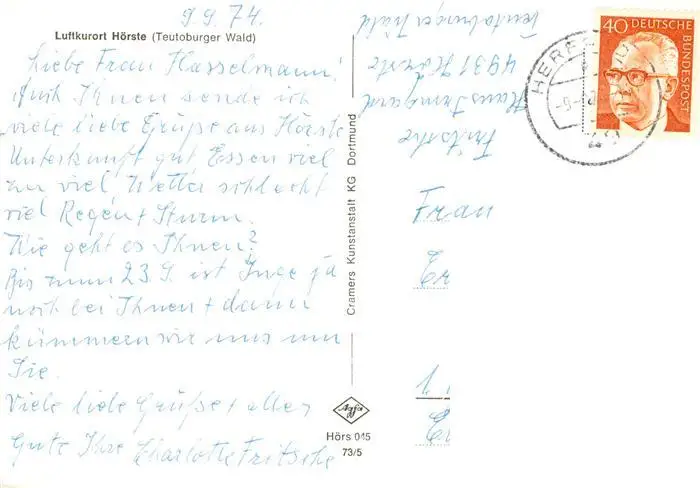 9.9.74.
Luftkurort Hörste (Teutoburger Wald)
Liebe Frau Hasselmann!
Auch Ihnen sende ich
viele liebe Grüße aus Hörste
Unterkunft gut Essen viel
zu viel Wetter schlecht
viel Regen + Sturm.
Wie geht es Ihnen?
Bis zum 23.9. ist Inge ja
noch bei Ihnen + dann
kümmern wir uns um
Sie.
Viele liebe Grüße + alles
Gute Ihre Charlotte Fritsche
Cramers Kunstanstalt KG Dortmund
Agfa
Hörs 045
73/5
Fritsche
Haus Irmgard
4931 Hörste
Teutoburger Wald
40 DEUTSCHE BUNDESPOST
Frau
Er
1